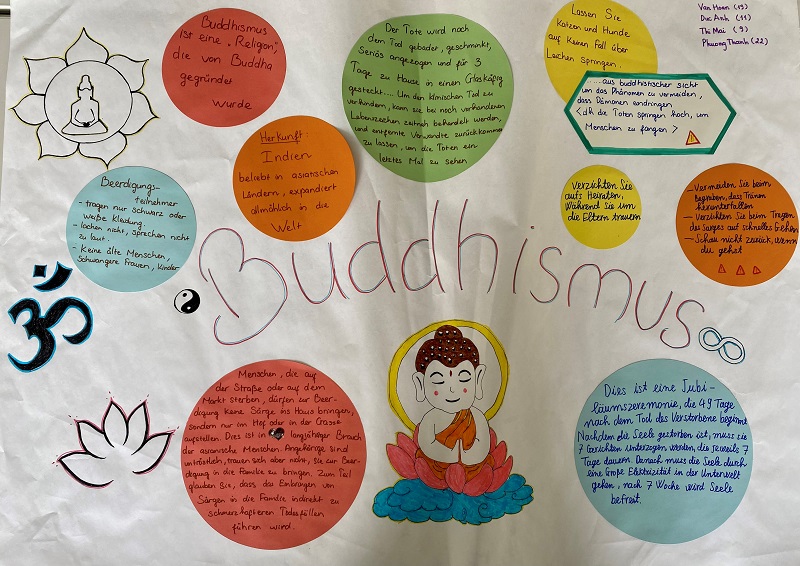 Buddhismus
ist eine „Religion",
die von Buddha
gegründet
wurde
Der Tote wird nach
dem Tod gebadet, geschminkt,
Seriös angezogen und für 3
Tage zu Hause in einen Glaskäfig
gesteckt.... Um den klinischen Tod zu
verhindern, kann sie bei noch vorhandenen
Lebenszeichen zeitnah behandelt werden,
und entfernte Verwandte zurückkommen
zu lassen, um die Toten ein
letztes Mal zu sehen
Lassen Sie
Katzen und Hunde
auf keinen Fall über
Leichen springen.
Van Hoan (19)
Duc Anh (11)
Thi Mai (9)
Phuong Thanh (22)
......aus buddhistischer Sicht
um das Phänomen zu vermeiden,
dass Dämonen eindringen
<dh die Toten springen hoch, um
Menschen zu fangen>
Herkunft:
Indien
beliebt in asiatischen
Ländern, expandiert
allmählich in die
Welt
Beerdigungs-
teilnehmer
- tragen nur schwarz oder
weiße Kleidung.
- lachen nicht, sprechen nicht
zu laut.
- Keine alte Menschen,
Schwangere Frauen, Kinder
Verzichten Sie
aufs Heiraten,
Während Sie um
die Eltern trauern
- Vermeiden Sie beim
Begraben, dass Tränen
herunterfallen
- Verzichten Sie beim Tragen
des Sarges auf schnelles Gehen
- Schau nicht zurück, wenn
du gehst
Buddhismus
ॐ
Menschen, die auf
der Straße oder auf dem
Markt sterben, dürfen zur Beer-
digung keine Särge ins Haus bringen,
sondern nur im Hof oder in der Gasse
aufstellen. Dies ist in langjähriger Brauch
der asianische Menschen. Angehörige sind
untröstlich, trauen sich aber nicht, sie zur Beer-
digung in die Familie zu bringen. Zum Teil
glauben Sie, dass das Einbringen von
Särgen in die Familie indirekt zu
schmerzhafteren Todesfällen
führen wird.
Dies ist eine Jubi-
läumszeremonie, die 49 Tage
nach dem Tod des Verstorbene beginnt
Nachdem die Seele gestorben ist, muss sie
7 Gerichten Unterzogen werden, die jeweils 7
Tage dauern. Danach muss die Seele durch
eine große in der Unterwelt
gehen, nach 7 Woche wird Seele
befreit.